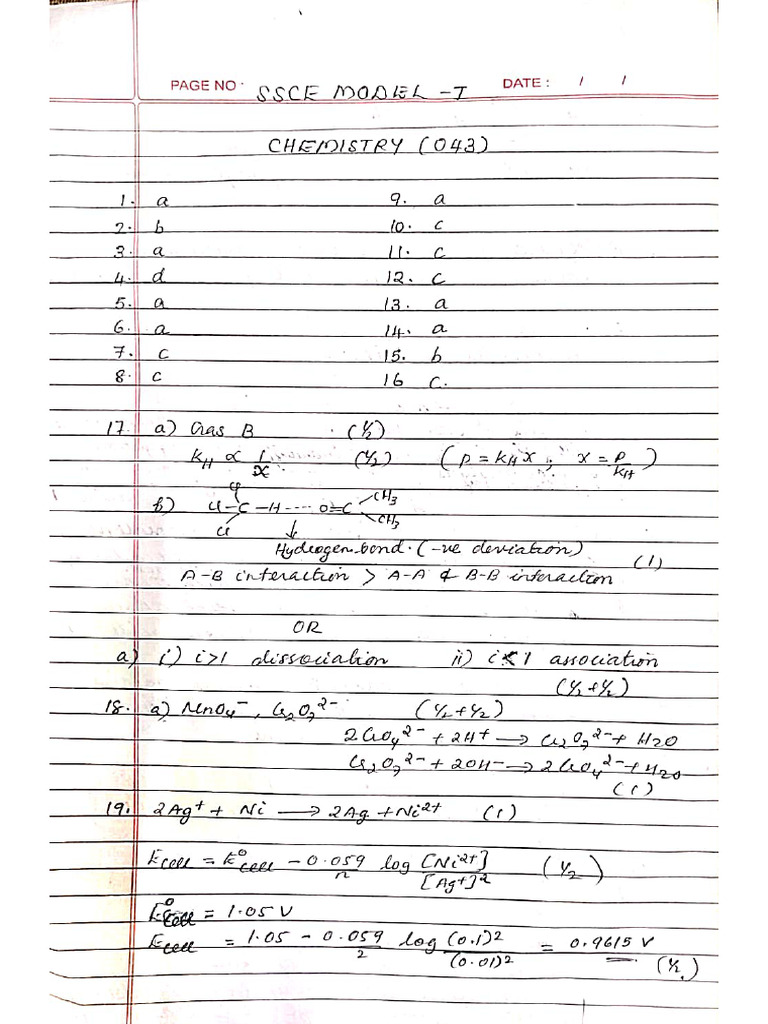 PAGE NO: SSCE MODEL -I DATE: / /
CHEMISTRY (043)
1. a 9. a
2. b 10. c
3. a 11. c
4. d 12. c
5. a 13. a
6. a 14. a
7. c 15. b
8. c 16 c.
17. a) Gas B (1/2)
KH ∝ 1/x (1/2) (p = KH x ; x = p/KH)
b) Cl
Cl-C-H---- O=C CH3
Cl CH3
↓
Hydrogen bond. (-ve deviation)
A-B interaction > A-A & B-B interaction (1)
OR
a) i) i>1 dissociation ii) i<1 association
(1/2+1/2)
18. a) MnO4⁻, Cr2O7²⁻ (1/2+1/2)
2CrO4²⁻ + 2H⁺ → Cr2O7²⁻ + H2O
Cr2O7²⁻ + 2OH⁻ → 2CrO4²⁻ + H2O
(1)
19. 2Ag⁺ + Ni → 2Ag + Ni²⁺ (1)
Ecell = E⁰cell - 0.059/n log [Ni²⁺]/[Ag⁺]² (1/2)
E⁰cell = 1.05 V
Ecell = 1.05 - 0.059/2 log (0.1)²/(0.01)² = 0.9615 V
(1/2)